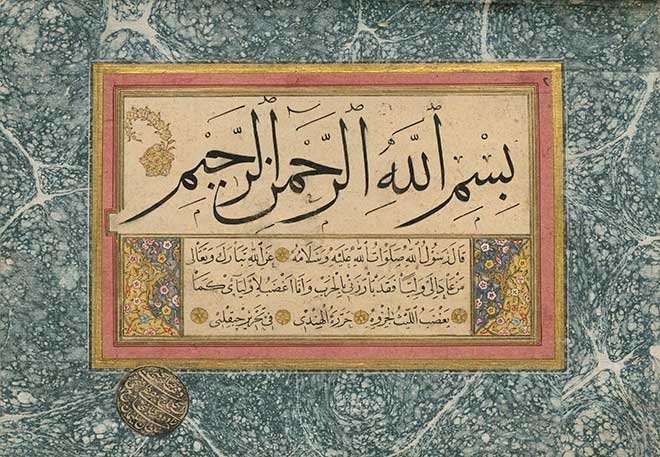 ٢
بِسْمِ اللّٰهِ الرَّحْمٰنِ الرَّحِيْمِ
قَالَ رَسُولُ اللّٰهِ صَلَوَاتُ اللّٰهِ عَلَيْهِ وَسَلَامُهُ عَنِ اللّٰهِ تَبَارَكَ وَتَعَالٰى
مَنْ عَادٰى لِي وَلِيًّا فَقَدْ بَارَزَنِي بِالْحَرْبِ وَاَنَا اَغْضَبُ لِاَوْلِيَآئِي كَمَا
يَغْضَبُ اللَّيْثُ لِجَرْوِهِ